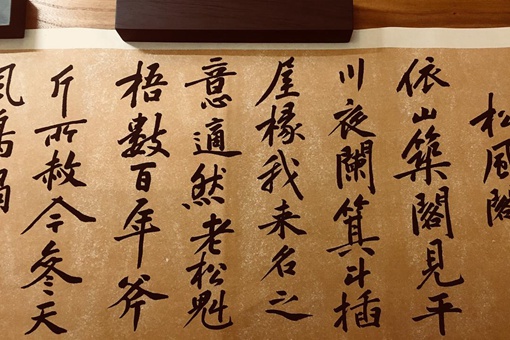 松風閣
依山築閣見平
川夜闌箕斗插
屋椽我来名之
意適然老松魁
梧數百年斧
斤所赦今参天
風鳴媧